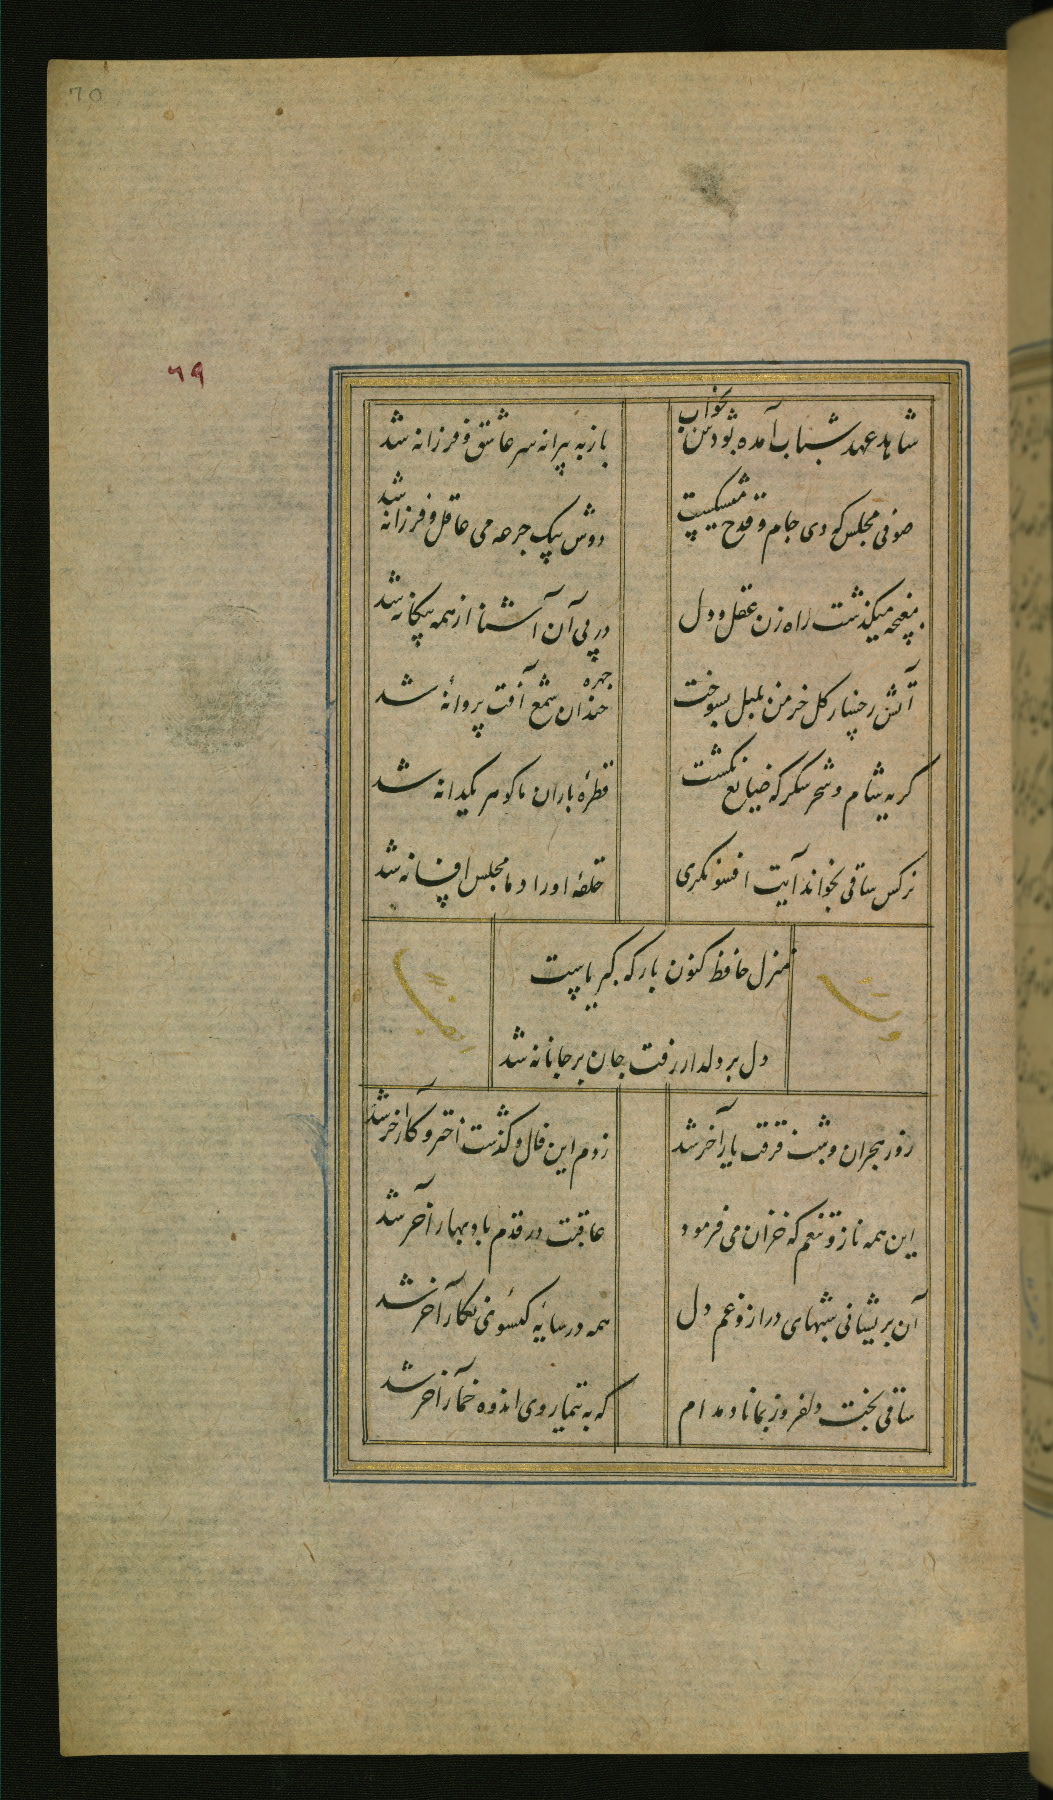 70
۶۹
شاهد عهد شباب آمده بودش بخواب
باز به پیرانه سر عاشق و فرزانه شد
صوفی مجلس که دی جام و قدح میشکست
دوش بیک جرعه می عاقل و فرزانه شد
مغبچه میگذشت راه زن عقل و دل
در پی آن آشنا از همه بیگانه شد
آتش رخسار گل خرمن بلبل بسوخت
چهره خندان شمع آفت پروانهٔ شد
گریه شام و سحر شکر که ضایع نگشت
قطرهٔ باران ما گوهر یکدانه شد
نرگس ساقی بخواند آیت افسونگری
حلقهٔ اوراد ما مجلس افسانه شد
منزل حافظ کنون بارکه کبریاست
دل بر دلدار رفت جان بر جانانه شد
روز هجران و شب فرقت یار آخر شد
زدم این فال و گذشت اختر و کار آخر شد
این همه ناز و تنعم که خزان می فرمود
عاقبت در قدم باد بهار آخر شد
آن پریشانی شبهای دراز و غم دل
همه در سایهٔ گیسوی نگار آخر شد
ساقی بخت دلفروز بماناد مدام
که به تیمار وی اندوه خمار آخر شد